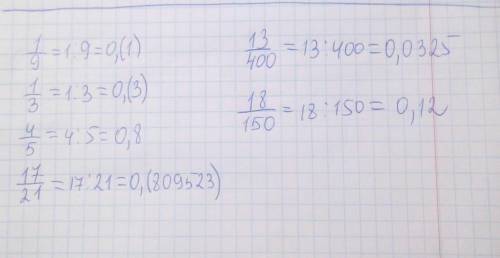 1/9 = 1:9 = 0,(1)
1/3 = 1:3 = 0,(3)
4/5 = 4:5 = 0,8
17/21 = 17:21 = 0,(809523)
13/400 = 13:400 = 0,0325
18/150 = 18:150 = 0,12